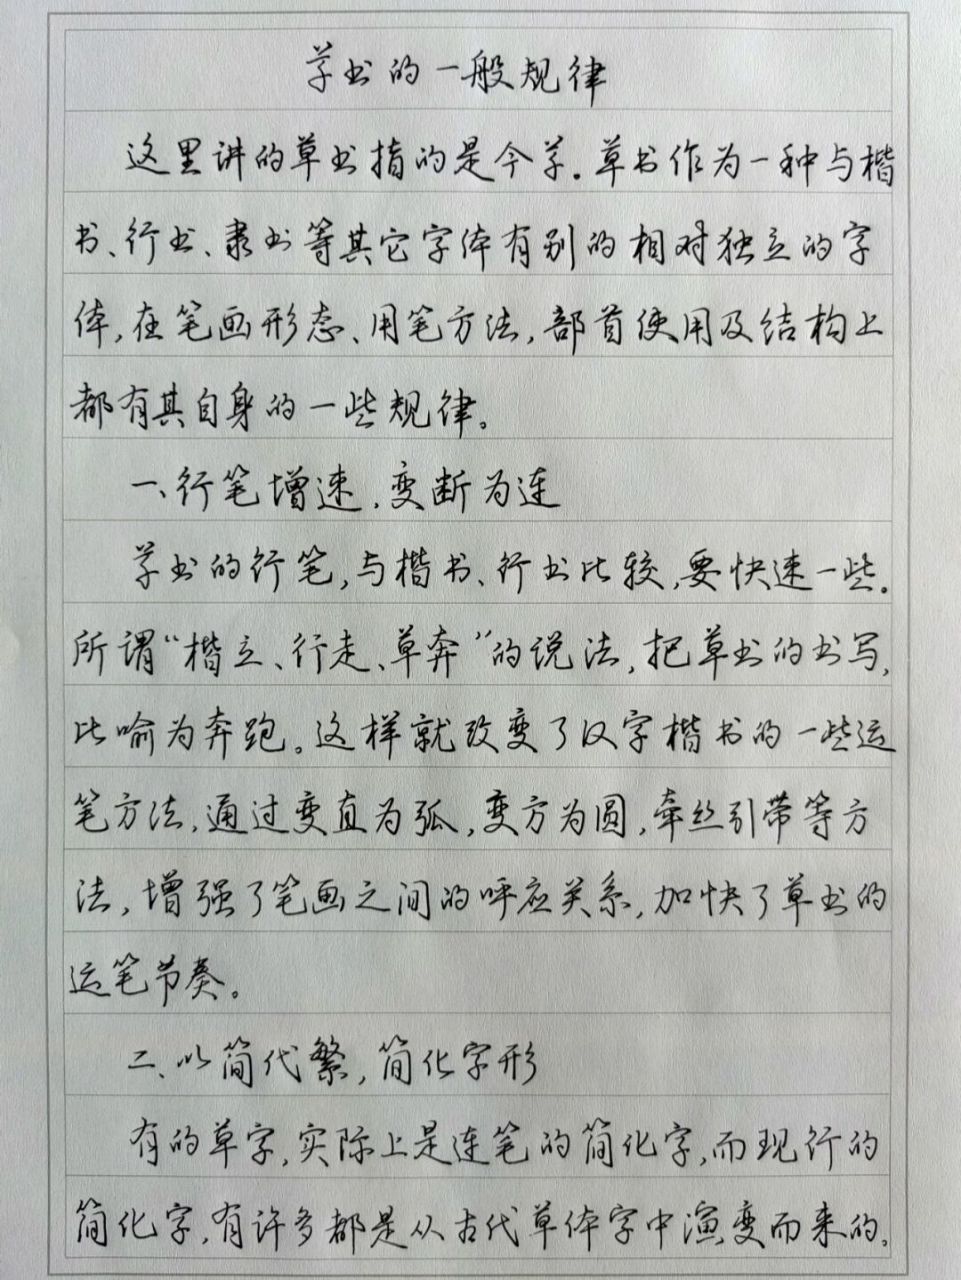 草书的一般规律
这里讲的草书指的是今草。草书作为一种与楷
书、行书、隶书等其它字体有别的相对独立的字
体,在笔画形态、用笔方法,部首使用及结构上
都有其自身的一些规律。
一、行笔增速,变断为连
草书的行笔,与楷书、行书比较,要快速一些。
所谓“楷立、行走、草奔”的说法,把草书的书写,
比喻为奔跑。这样就改变了汉字楷书的一些运
笔方法,通过变直为弧,变方为圆,牵丝引带等方
法,增强了笔画之间的呼应关系,加快了草书的
运笔节奏。
二、以简代繁,简化字形
有的草字,实际上是连笔的简化字,而现行的
简化字,有许多都是从古代草体字中演变而来的。